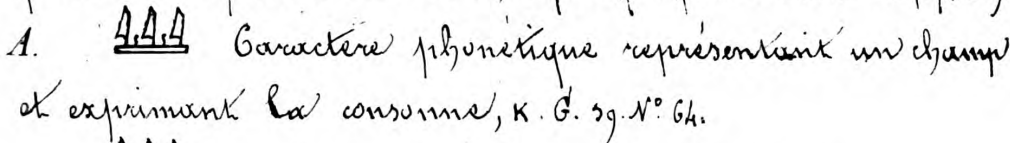 A. 𓇏 Caractère phonétique représentant un champ
et exprimant la consonne, K. G. 39. N° 64.